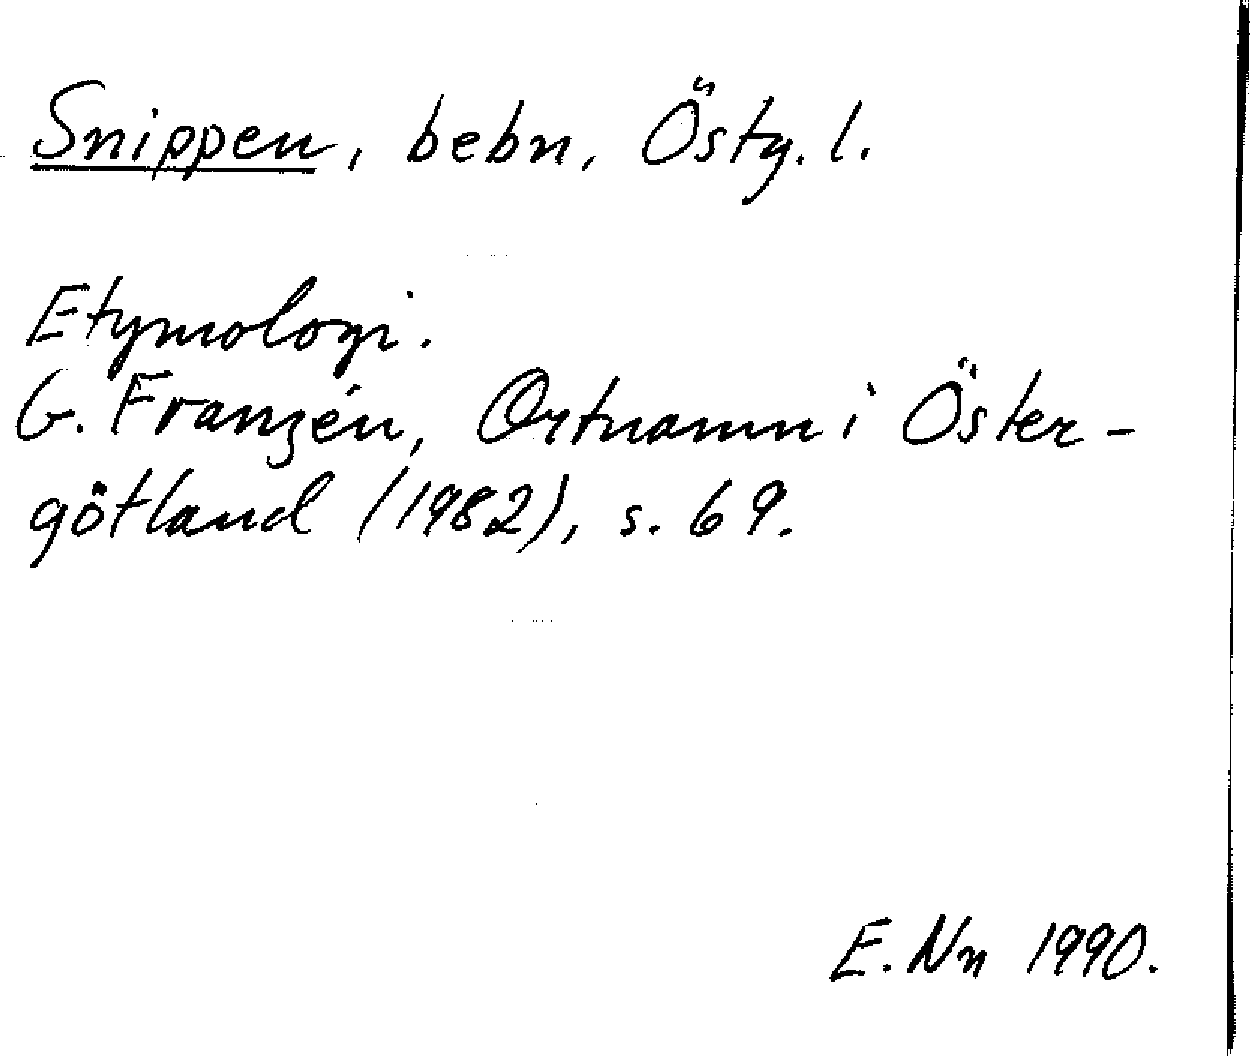 Snippen, bebn, Östg. l.
Etymologi.
G. Franzén, Ortnamn i Öster-
götland (1982), s. 69.
E. Nn 1990.